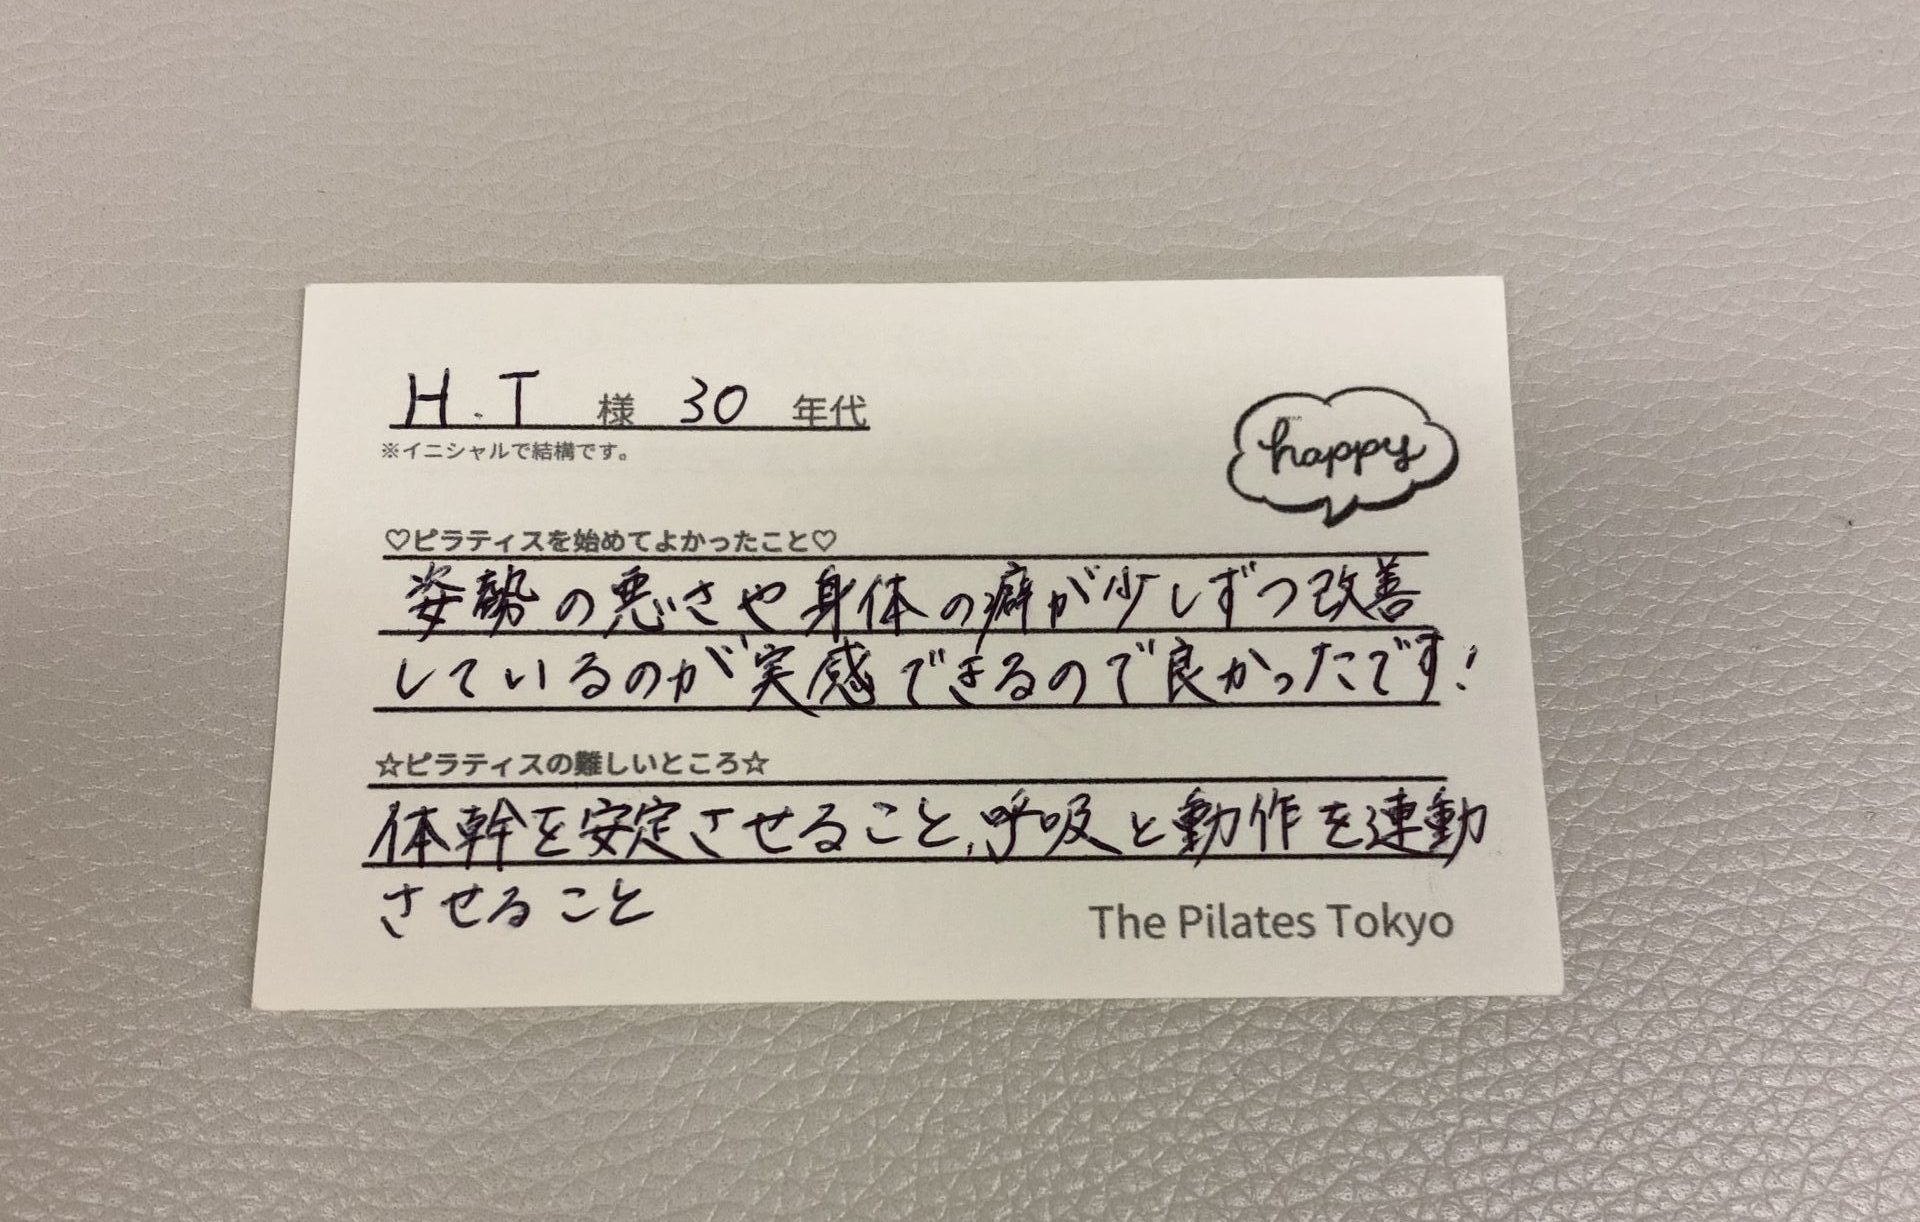 H.T 様 30 年代
※イニシャルで結構です。
happy
♡ピラティスを始めてよかったこと♡
姿勢の悪さや身体の癖が少しずつ改善
しているのが実感できるので良かったです!
☆ピラティスの難しいところ☆
体幹を安定させること、呼吸と動作を連動
させること
The Pilates Tokyo